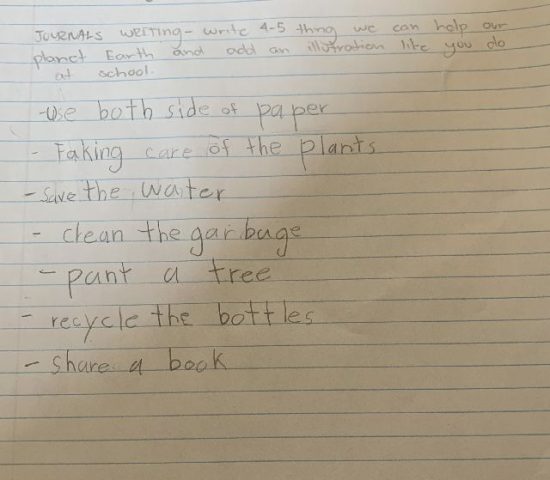 JOURNALS WRITING - write 4-5 thing we can help our
planet Earth and add an illustration like you do
at school.
-use both side of paper
- Taking care of the plants
- Save the water
- clean the garbage
- pant a tree
- recycle the bottles
- share a book